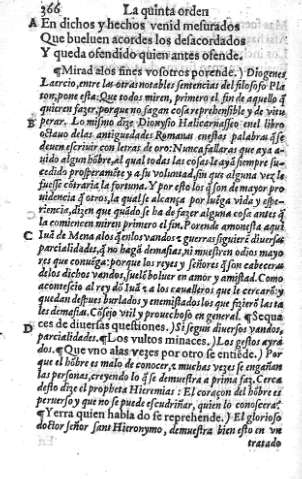 366 La quinta orden
A En dichos y hechos venid mesurados
Que bueluen acordes los desacordados
Y queda ofendido quien antes ofende.
¶ Mirad alos fines vosotros porende.) Diogenes
Laercio, entre las otras notables sentencias del filosofo Pla
ton, pone esta: Que todos miren, primero el fin de aquello q̃
quieren fazer, porque no fagan cosa reprehensible y de vitu
B perar. Lo mismo dize Dionysio Halicarnaseo enel libro
octauo delas antiguedades Romanas enestas palabras q̃ se
deuen escriuir con letras de oro: Nunca fallaras que aya a-
uido algun hõbre, al qual todas las cosas le ayã siempre su-
cedido prosperamẽte y a su voluntad, sin que alguna vez le
fuesse cõtraria la fortuna. Y por esto los q̃ son de mayor pro
uidencia q̃ otros, la qual se alcança por luẽga vida y espe-
riencia, dizen que quãdo se ha de fazer alguna cosa antes q̃
la comiencen miren primero el fin. Porende amonesta aqui
C Iuã de Mena alos q̃ enlos vandos & guerras siguierẽ diuersas
parcialidades, q̃ no hagã demasias, ni muestren odios mayo
res que conuẽga: porque los reyes y señores q̃ son cabeceras
delos dichos vandos, suelẽ boluer en amor y amistad. Como
acontescio al rey dõ Iuã & a los caualleros que le cercarõ: y
quedan despues burlados y enemistados los que fizierõ las ta
les demasias. Cõsejo vtil y prouechoso en general. ¶ Sequa
D ces de diuersas questiones.) Si seguis diuersos vandos,
parcialidades. ¶ Los vultos minaces.) Los gestos ayra
dos. ¶ Que vno alas vezes por otro se entiẽde.) Por
que el hõbre es malo de conocer, & muchas vezes se engañan
las personas, creyendo lo q̃ se demuestra a prima faz. Cerca
desto dize el propheta Hieremias: El coraçon del hõbre es
peruerso y que no se puede escudriñar, quien lo conoscera?
¶ Yerra quien habla do se reprehende.) El glorioso
doctor señor sant Hieronymo, demuestra bien esto en vn
tratado